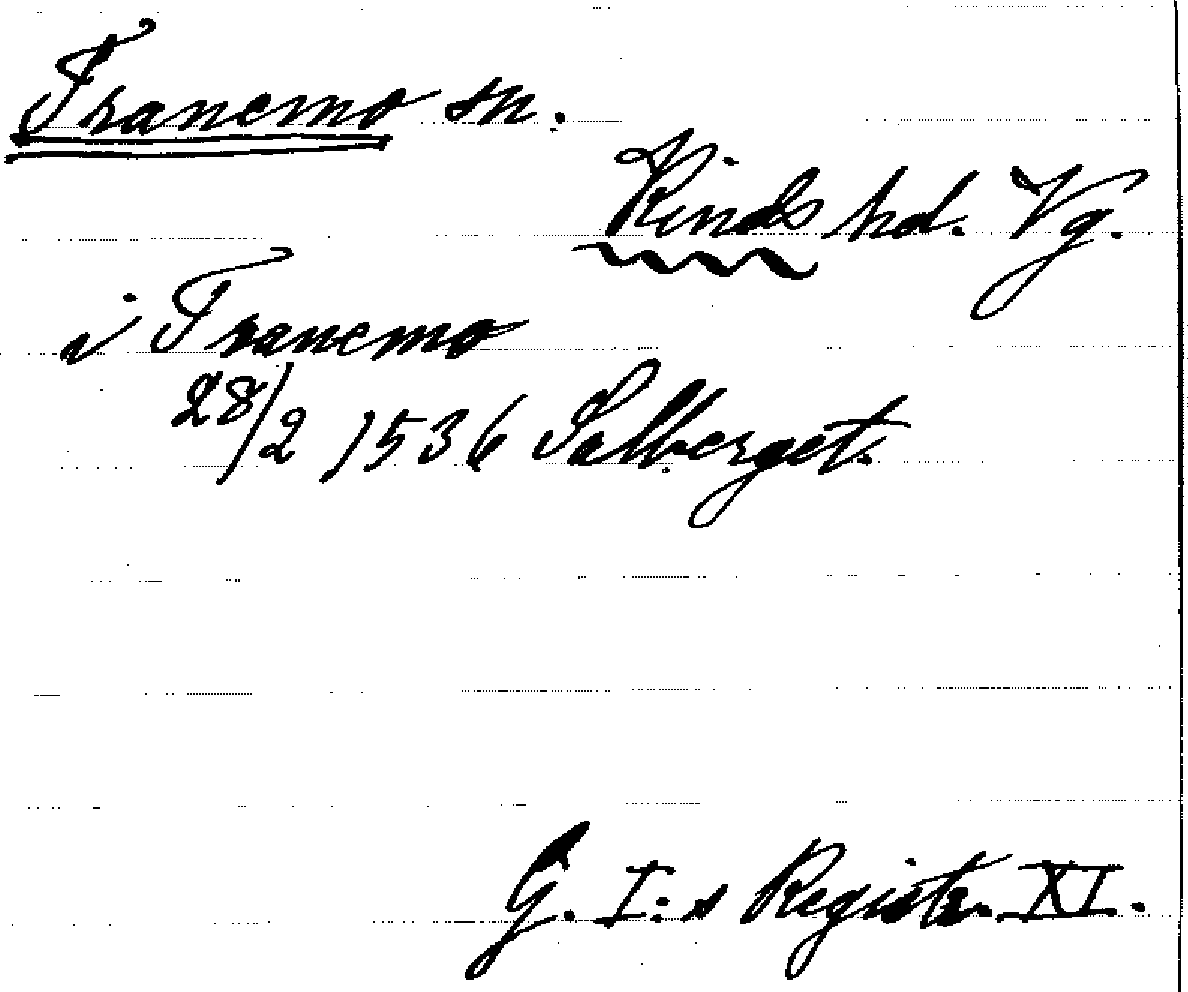 Tranemo sn.
Kinds hd. Vg.
i Tranemo
28/2 1536 Salberget.
G. I:s Registr. XI.